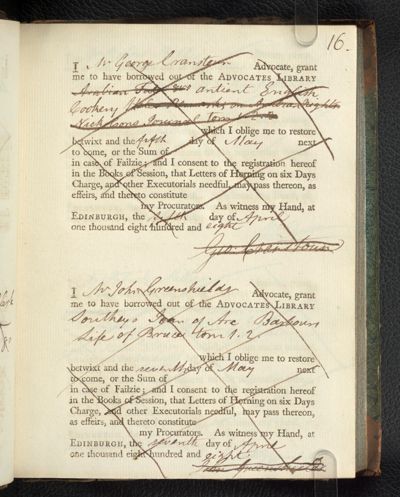 16.
I Mr George Cranstoun Advocate, grant
me to have borrowed out of the ADVOCATES LIBRARY
Arabian antient English
Cookery
Nicholsons Journal tom
which I oblige me to restore
betwixt and the fifth day of May next
to come, or the Sum of
in case of Failzie; and I consent to the registration hereof
in the Books of Session, that Letters of Horning on six Days
Charge, and other Executorials needful, may pass thereon, as
effeirs, and thereto constitute
my Procurators. As witness my Hand, at
EDINBURGH, the fifth day of April
one thousand eight hundred and eight
Geo: Cranstoun
I Mr John Greenshields Advocate, grant
me to have borrowed out of the ADVOCATES LIBRARY
Southeys Joan of Arc Barbours
Life of Bruce tom 1. 2
which I oblige me to restore
betwixt and the seventh day of May next
to come, or the Sum of
in case of Failzie; and I consent to the registration hereof
in the Books of Session, that Letters of Horning on six Days
Charge, and other Executorials needful, may pass thereon,
as effeirs, and thereto constitute
my Procurators. As witness my Hand, at
EDINBURGH, the seventh day of April
one thousand eight hundred and eight
John Greenshields